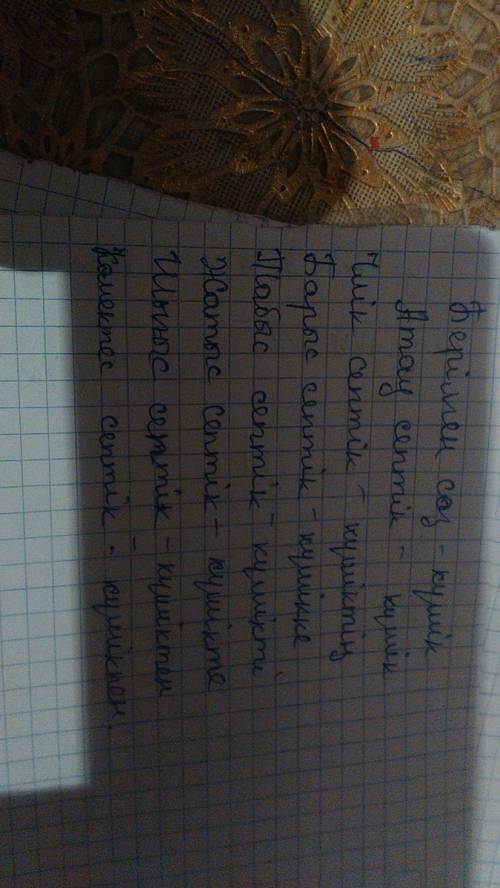 Берілген сөз - күшік
Атау септік - күшік
Ілік септік - күшіктің
Барыс септік - күшікке
Табыс септік - күшікті
Жатыс септік - күшікте
Шығыс септік - күшіктен
Көмектес септік - күшікпен.